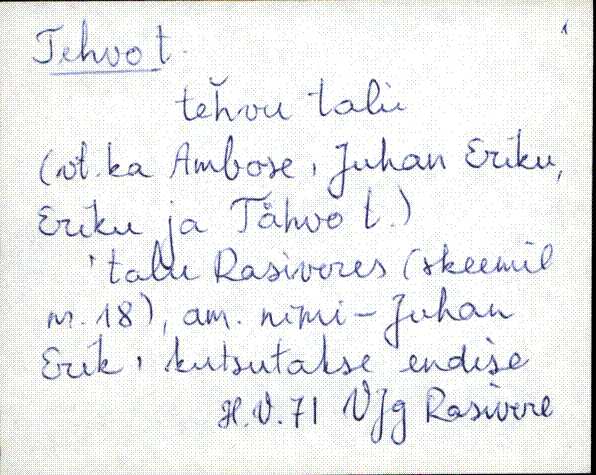 1
Tehvo t.
tèhvu talu
(vt. ka Ambose, Juhan Eriku,
Eriku ja Tåhvo t.)
'talu Rasiveres (skeemil
nr. 18), am. nimi – Juhan
Erik, kutsutakse endise
H.V.71 VJg Rasivere